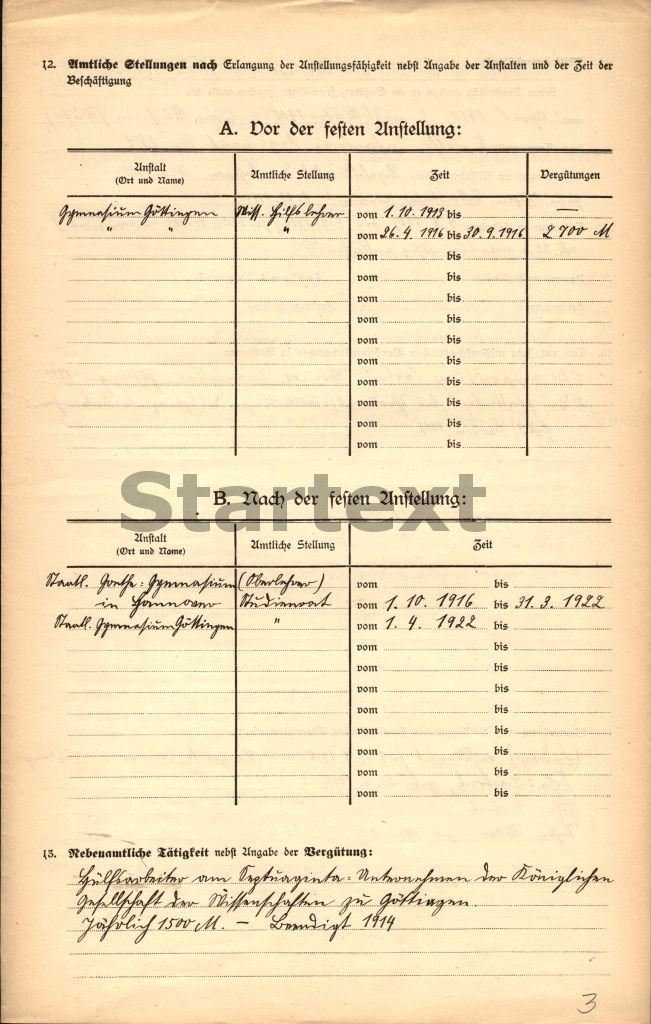 12. Amtliche Stellungen nach Erlangung der Anstellungsfähigkeit nebst Angabe der Anstalten und der Zeit der
Beschäftigung
A. Vor der festen Anstellung:
Anstalt (Ort und Name) Amtliche Stellung Zeit Vergütungen
Gymnasium Göttingen Wiss. Hilfslehrer vom 1. 10. 1913 bis —
" " " vom 26. 4. 1916 bis 30. 9. 1916 2700 M
vom bis
vom bis
vom bis
vom bis
vom bis
vom bis
vom bis
vom bis
vom bis
vom bis
Startext
B. Nach der festen Anstellung:
Anstalt (Ort und Name) Amtliche Stellung Zeit
Staatl. Goethe-Gymnasium (Oberlehrer) vom bis
in Hannover Studienrat vom 1. 10. 1916 bis 31. 3. 1922
Staatl. Gymnasium Göttingen " vom 1. 4. 1922 bis
vom bis
vom bis
vom bis
vom bis
vom bis
vom bis
vom bis
vom bis
13. Nebenamtliche Tätigkeit nebst Angabe der Vergütung:
Hülfsarbeiter am Septuaginta-Unternehmen der Königlichen
Gesellschaft der Wissenschaften zu Göttingen.
Jährlich 1500 M. — Beendigt 1914
3